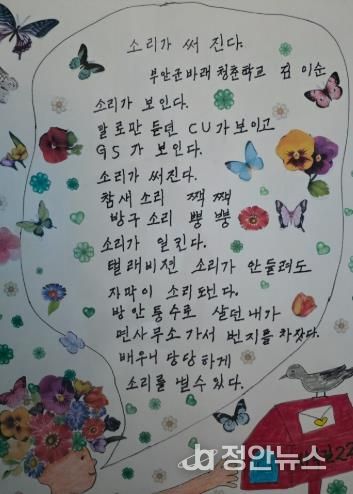 소리가 써 진다.
부안군바래 청춘학교 김 이순
소리가 보인다.
말로만 듣던 CU가 보이고
GS 가 보인다.
소리가 써진다.
참새 소리 짹 짹
방구 소리 뿡 뿡
소리가 읽킨다.
텔래비젼 소리가 안들려도
자막이 소리 된다.
방안 통수로 살던 내가
면사무소 가서 번지를 차잤다.
배우니 당당하게
소리를 낼수 있다.
정안뉴스